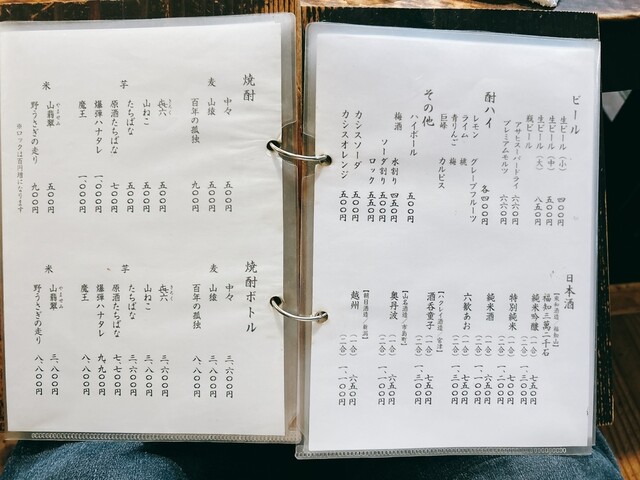 ビール
生ビール（小） 四〇〇円
生ビール（中） 五五〇円
生ビール（大） 八五〇円
瓶ビール
アサヒスーパードライ 六六〇円
プレミアムモルツ 六六〇円
酎ハイ 各四〇〇円
レモン グレープフルーツ
ライム 桃
青りんご 梅
巨峰 カルピス
その他
ハイボール 五〇〇円
梅酒
水割り 四五〇円
ソーダ割り 五〇〇円
ロック 五五〇円
カシスソーダ 五五〇円
カシスオレンジ 五〇〇円
日本酒
福知三萬二千石
純米吟醸（一合） 七五〇円
（二合）一、三〇〇円
特別純米（一合） 七〇〇円
（二合）一、二〇〇円
純米酒（一合） 六五〇円
（二合）一、一〇〇円
六歓あお（一合） 七五〇円
（二合）一、三〇〇円
【ハクレイ酒造／宮津】
酒呑童子（一合） 七五〇円
（二合）一、三〇〇円
【山名酒造／市島町】
奥丹波（一合） 六五〇円
（二合）一、一〇〇円
【朝日酒造／新潟】
越州（一合） 六五〇円
（二合）一、一〇〇円
焼酎
麦
中々 五〇〇円
山猿 五〇〇円
百年の孤独 九〇〇円
芋
㐂六 五五〇円
きろく
山ねこ 五五〇円
たちばな 五〇〇円
原酒たちばな 七〇〇円
爆弾ハナタレ 一、〇〇〇円
魔王 一、〇〇〇円
米
山翡翠 五〇〇円
やませみ
野うさぎの走り 九〇〇円
※ロックは百円増になります
焼酎ボトル
麦
中々 三、六〇〇円
山猿 三、六〇〇円
百年の孤独 八、八〇〇円
芋
㐂六 三、六〇〇円
きろく
山ねこ 三、八〇〇円
たちばな 三、六〇〇円
原酒たちばな 七、七〇〇円
爆弾ハナタレ 九、九〇〇円
魔王 八、八〇〇円
米
山翡翠 三、八〇〇円
やませみ
野うさぎの走り 八、八〇〇円